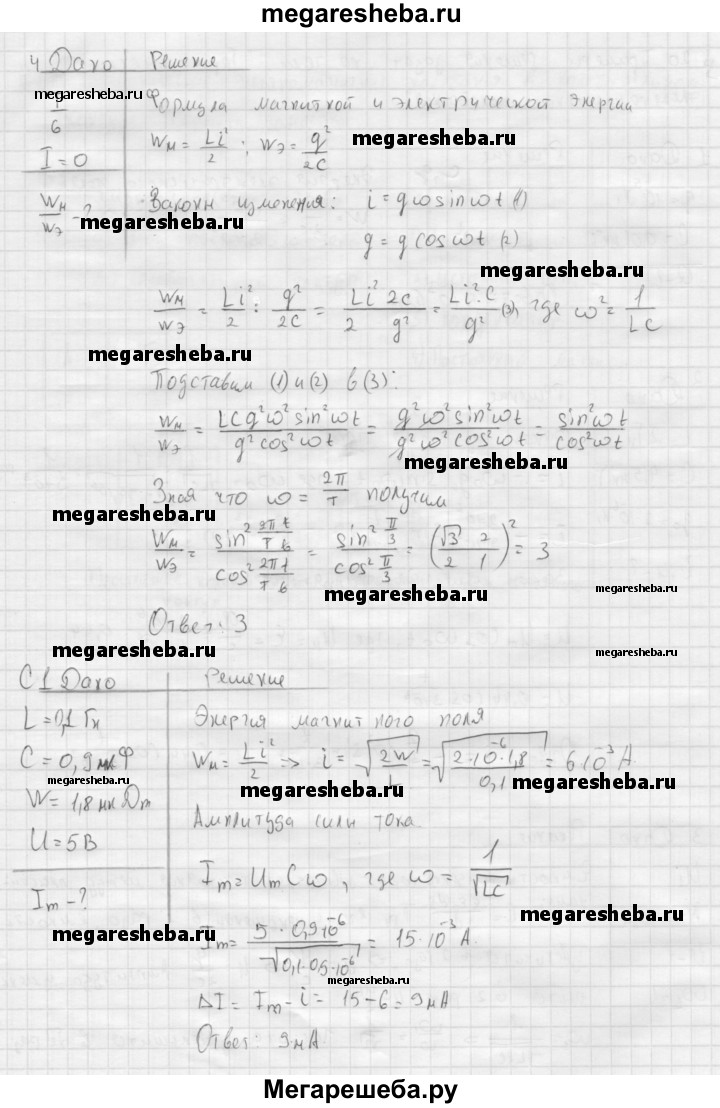 megaresheba.ru
4 Дано Решение
megaresheba.ru Формула магнитной и электрической энергии
6
I = 0 Wм = Li²/2 ; Wэ = q²/2C megaresheba.ru
Wм/Wэ - ? Законы изменения: i = qω sin ωt (1)
megaresheba.ru
q = q cos ωt (2)
megaresheba.ru
Wм/Wэ = Li²/2 : q²/2C = Li² 2C/2 q² = Li² C/q² (3), где ω² = 1/LC
megaresheba.ru
Подставим (1) и (2) в (3):
Wм/Wэ = LCq²ω² sin² ωt/q² cos² ωt = q²ω² sin² ωt/q²ω² cos² ωt = sin² ωt/cos² ωt
megaresheba.ru
Зная что ω = 2π/T получим
megaresheba.ru
Wм/Wэ = sin² 2π t/T 6/cos² 2π t/T 6 = sin² π/3/cos² π/3 = (√3/2 2/1)² = 3
megaresheba.ru
megaresheba.ru
Ответ: 3
megaresheba.ru
megaresheba.ru
C1 Дано Решение
L = 0,1 Гн Энергия магнитного поля
C = 0,9 мкФ Wм = Li²/2 => i = √2W/L = √2·10⁻⁶·1,8/0,1 = 6·10⁻³ A
megaresheba.ru
megaresheba.ru
W = 1,8 мк Дж Амплитуда силы тока
megaresheba.ru
U = 5 В
Im - ? Im = Um C ω, где ω = 1/√LC
megaresheba.ru
megaresheba.ru
Im = 5 · 0,9·10⁻⁶/√0,1·0,5·10⁻⁶ = 15·10⁻³ A.
megaresheba.ru
ΔI = Im - i = 15 - 6 = 9 мA
Ответ: 9 мA
megaresheba.ru
Мегарешеба.ру